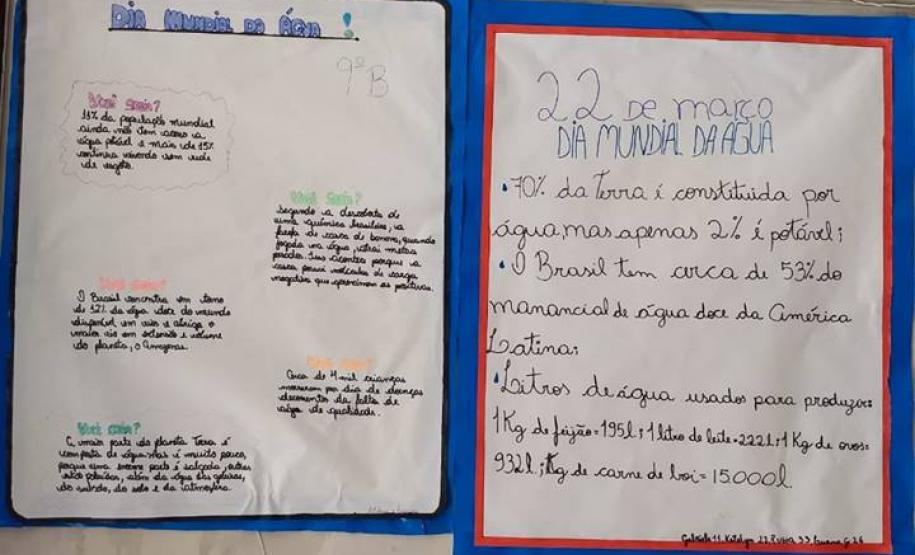 DIA MUNDIAL DA ÁGUA !
9º B
Você sabia?
11% da população mundial
ainda não tem acesso a
água potável e mais de 15%
continua vivendo sem rede
de esgoto.
Você sabia?
Segundo a descoberta de
uma química brasileira, a
de casca de banana, quando
jogada na água, atrai metais
pesados. Isso acontece porque a
casca possui moléculas de carga
negativa que aproximam as positivas.
Você sabia?
O Brasil encontra em torno
de 12% da água doce do mundo
disponível em rios e abriga o
maior rio em extensão e volume
do planeta, o Amazonas.
Você sabia?
Cerca de 4 mil crianças
morrem por dia de doenças
decorrentes da falta de
água de qualidade.
Você sabia?
maior parte do planeta Terra é
composta de água mas é muito pouco,
porque uma enorme parte é salgada, outras
estão poluídas, além da água das geleiras,
do subsolo, do solo e da atmosfera.
22 DE março
DIA MUNDIAL DA ÁGUA
•70% da Terra é constituida por
água,mas apenas 2% é potável;
•O Brasil tem cerca de 53% do
manancial de água doce da América
Latina;
•Litros de água usados para produzir:
1Kg de feijão=195l; 1 litro de leite=222l; 1 Kg de ovos=
932l; Kg de carne de boi= 15000l.